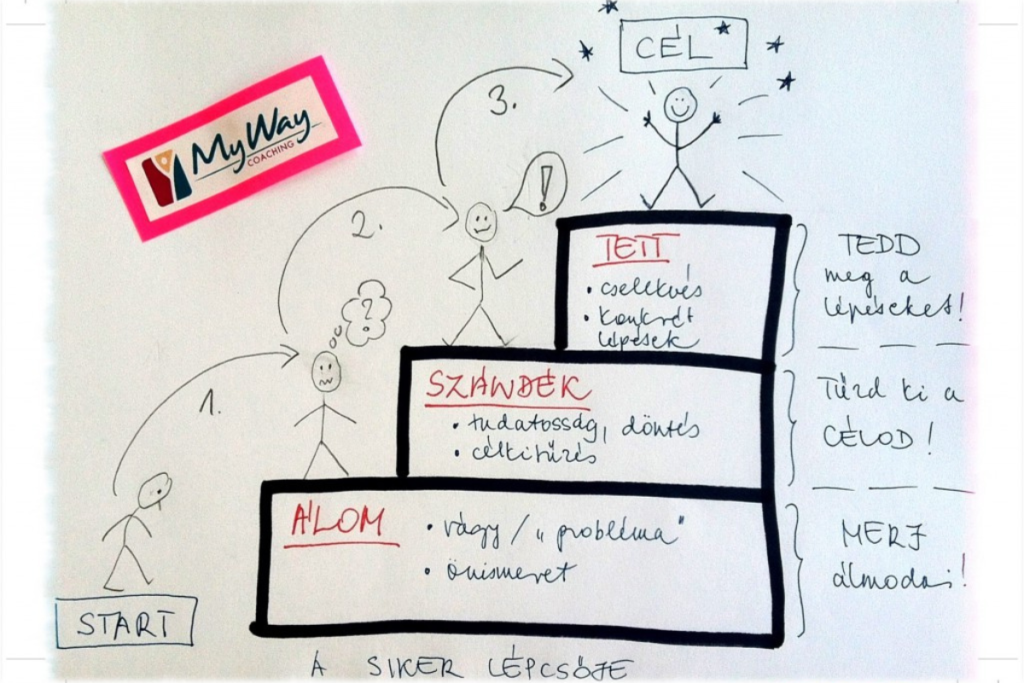 CÉL
3.
MyWay
COACHING
!
2.
TETT
• cselekvés
• konkrét
lépések
TEDD
meg a
lépéseket!
?
1.
SZÁNDÉK
• tudatosság, döntés
• célkitűzés
Tűzd ki a
CÉLOD!
ÁLOM
• vágy / „probléma"
• önismeret
MERJ
álmodni!
START
A SIKER LÉPCSŐJE